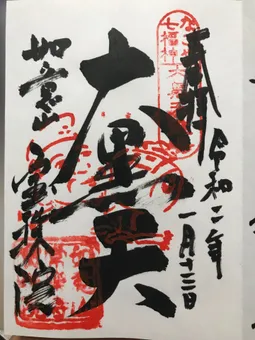 奉拝 令和二年
一月十三日
なごや
七福神 大黒天
大黒天
如意山 宝珠院